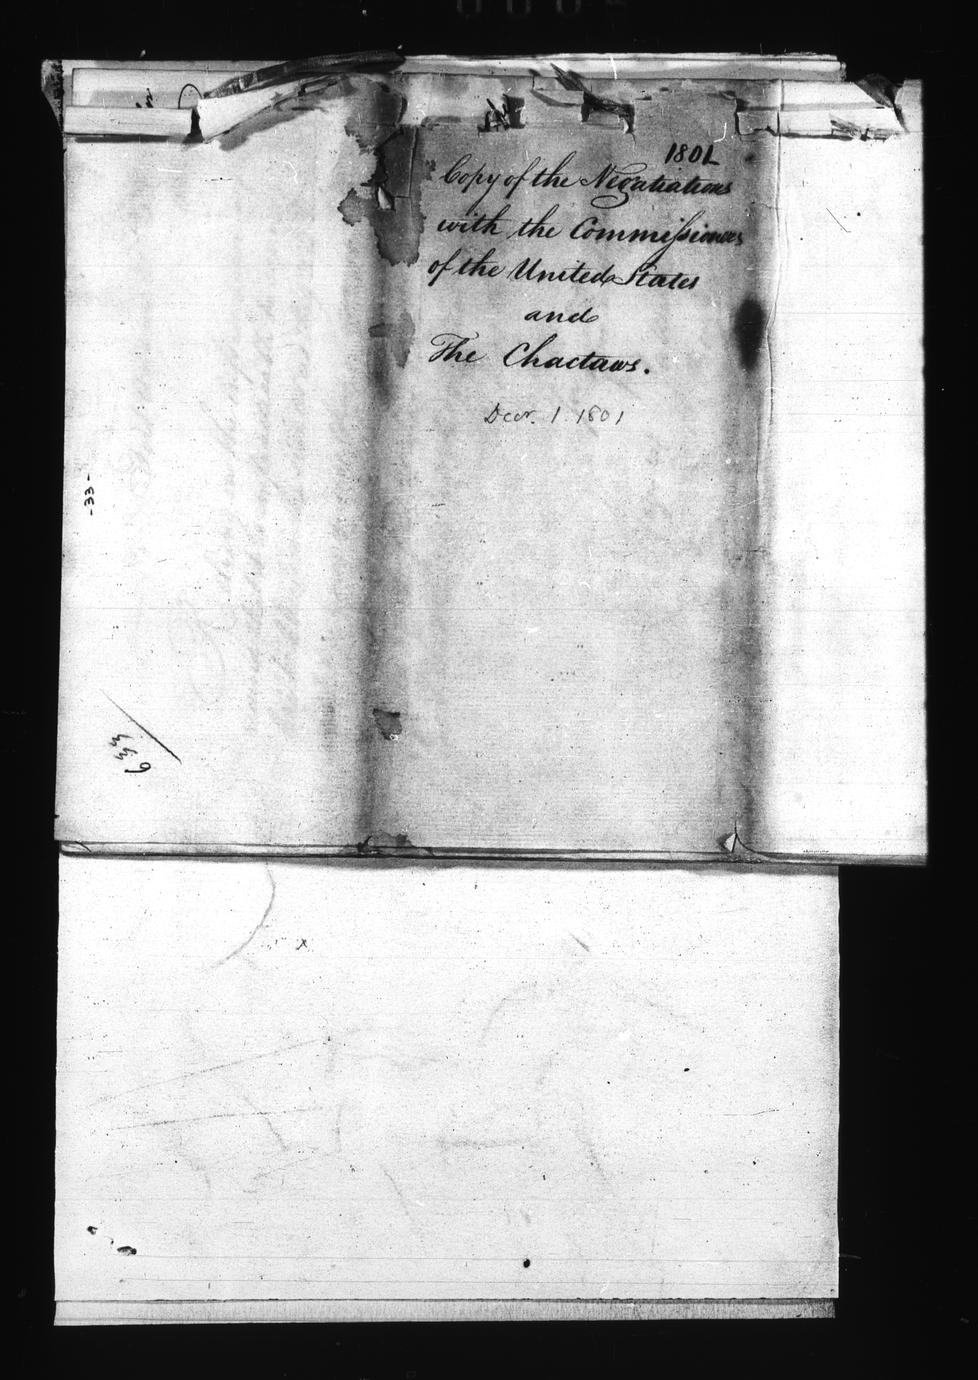 1801
Copy of the Negotiations
with the Commissioners
of the United States
and
The Chactaws.
Decr. 1. 1801
-33-
633